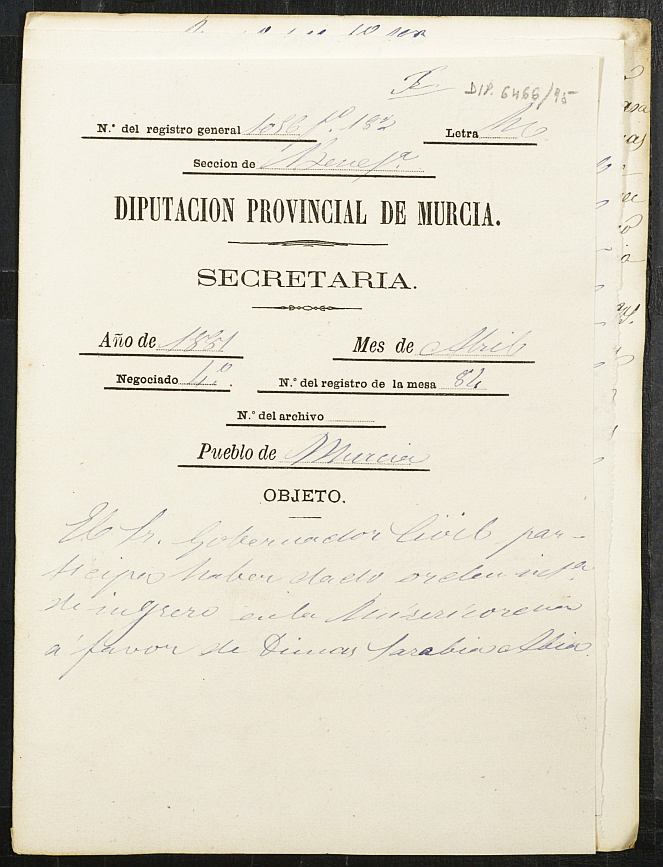 DIP. 6466/95
N.º del registro general 1086 fº 182 Letra M
Seccion de Benefª
DIPUTACION PROVINCIAL DE MURCIA.
SECRETARIA.
Año de 1881 Mes de Abril
Negociado 1.º N.º del registro de la mesa 82
N.º del archivo
Pueblo de Murcia
OBJETO.
El Sr. Gobernador Civil par-
ticipa haber dado orden intª.
de ingreso en la Misericordia
á favor de Dimas Sarabia Abia.